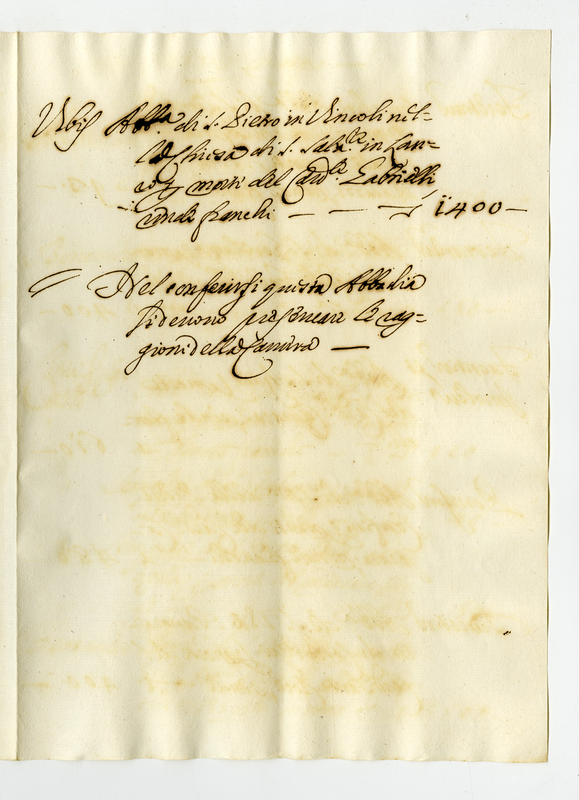 Abb.ª di S. Pietro in Vincoli nel=
la Chiesa di S. Salv.re in Lau=
morte del Card.le Gabrielli
rende franchi — — — 1400 —
Nel conferirsi questa Abbadia
si devono preservare le rag=
gioni della Camera —